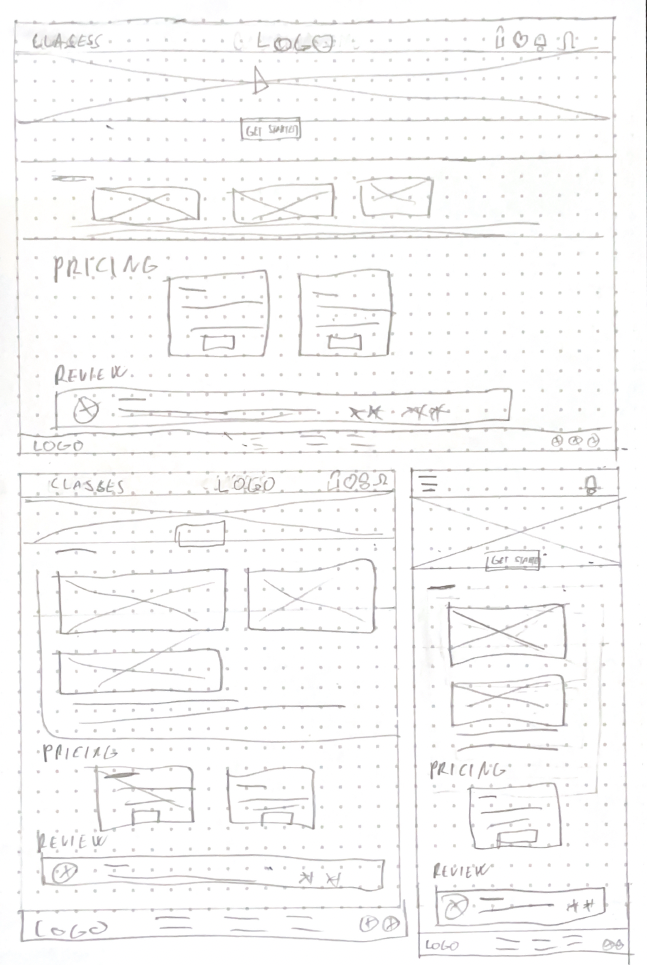 CLASESS LOGO
GET STARTED
PRICING
REVIEW
LOGO
CLASSES LOGO
PRICING
REVIEW
LOGO
GET STARTED
PRICING
REVIEW
LOGO